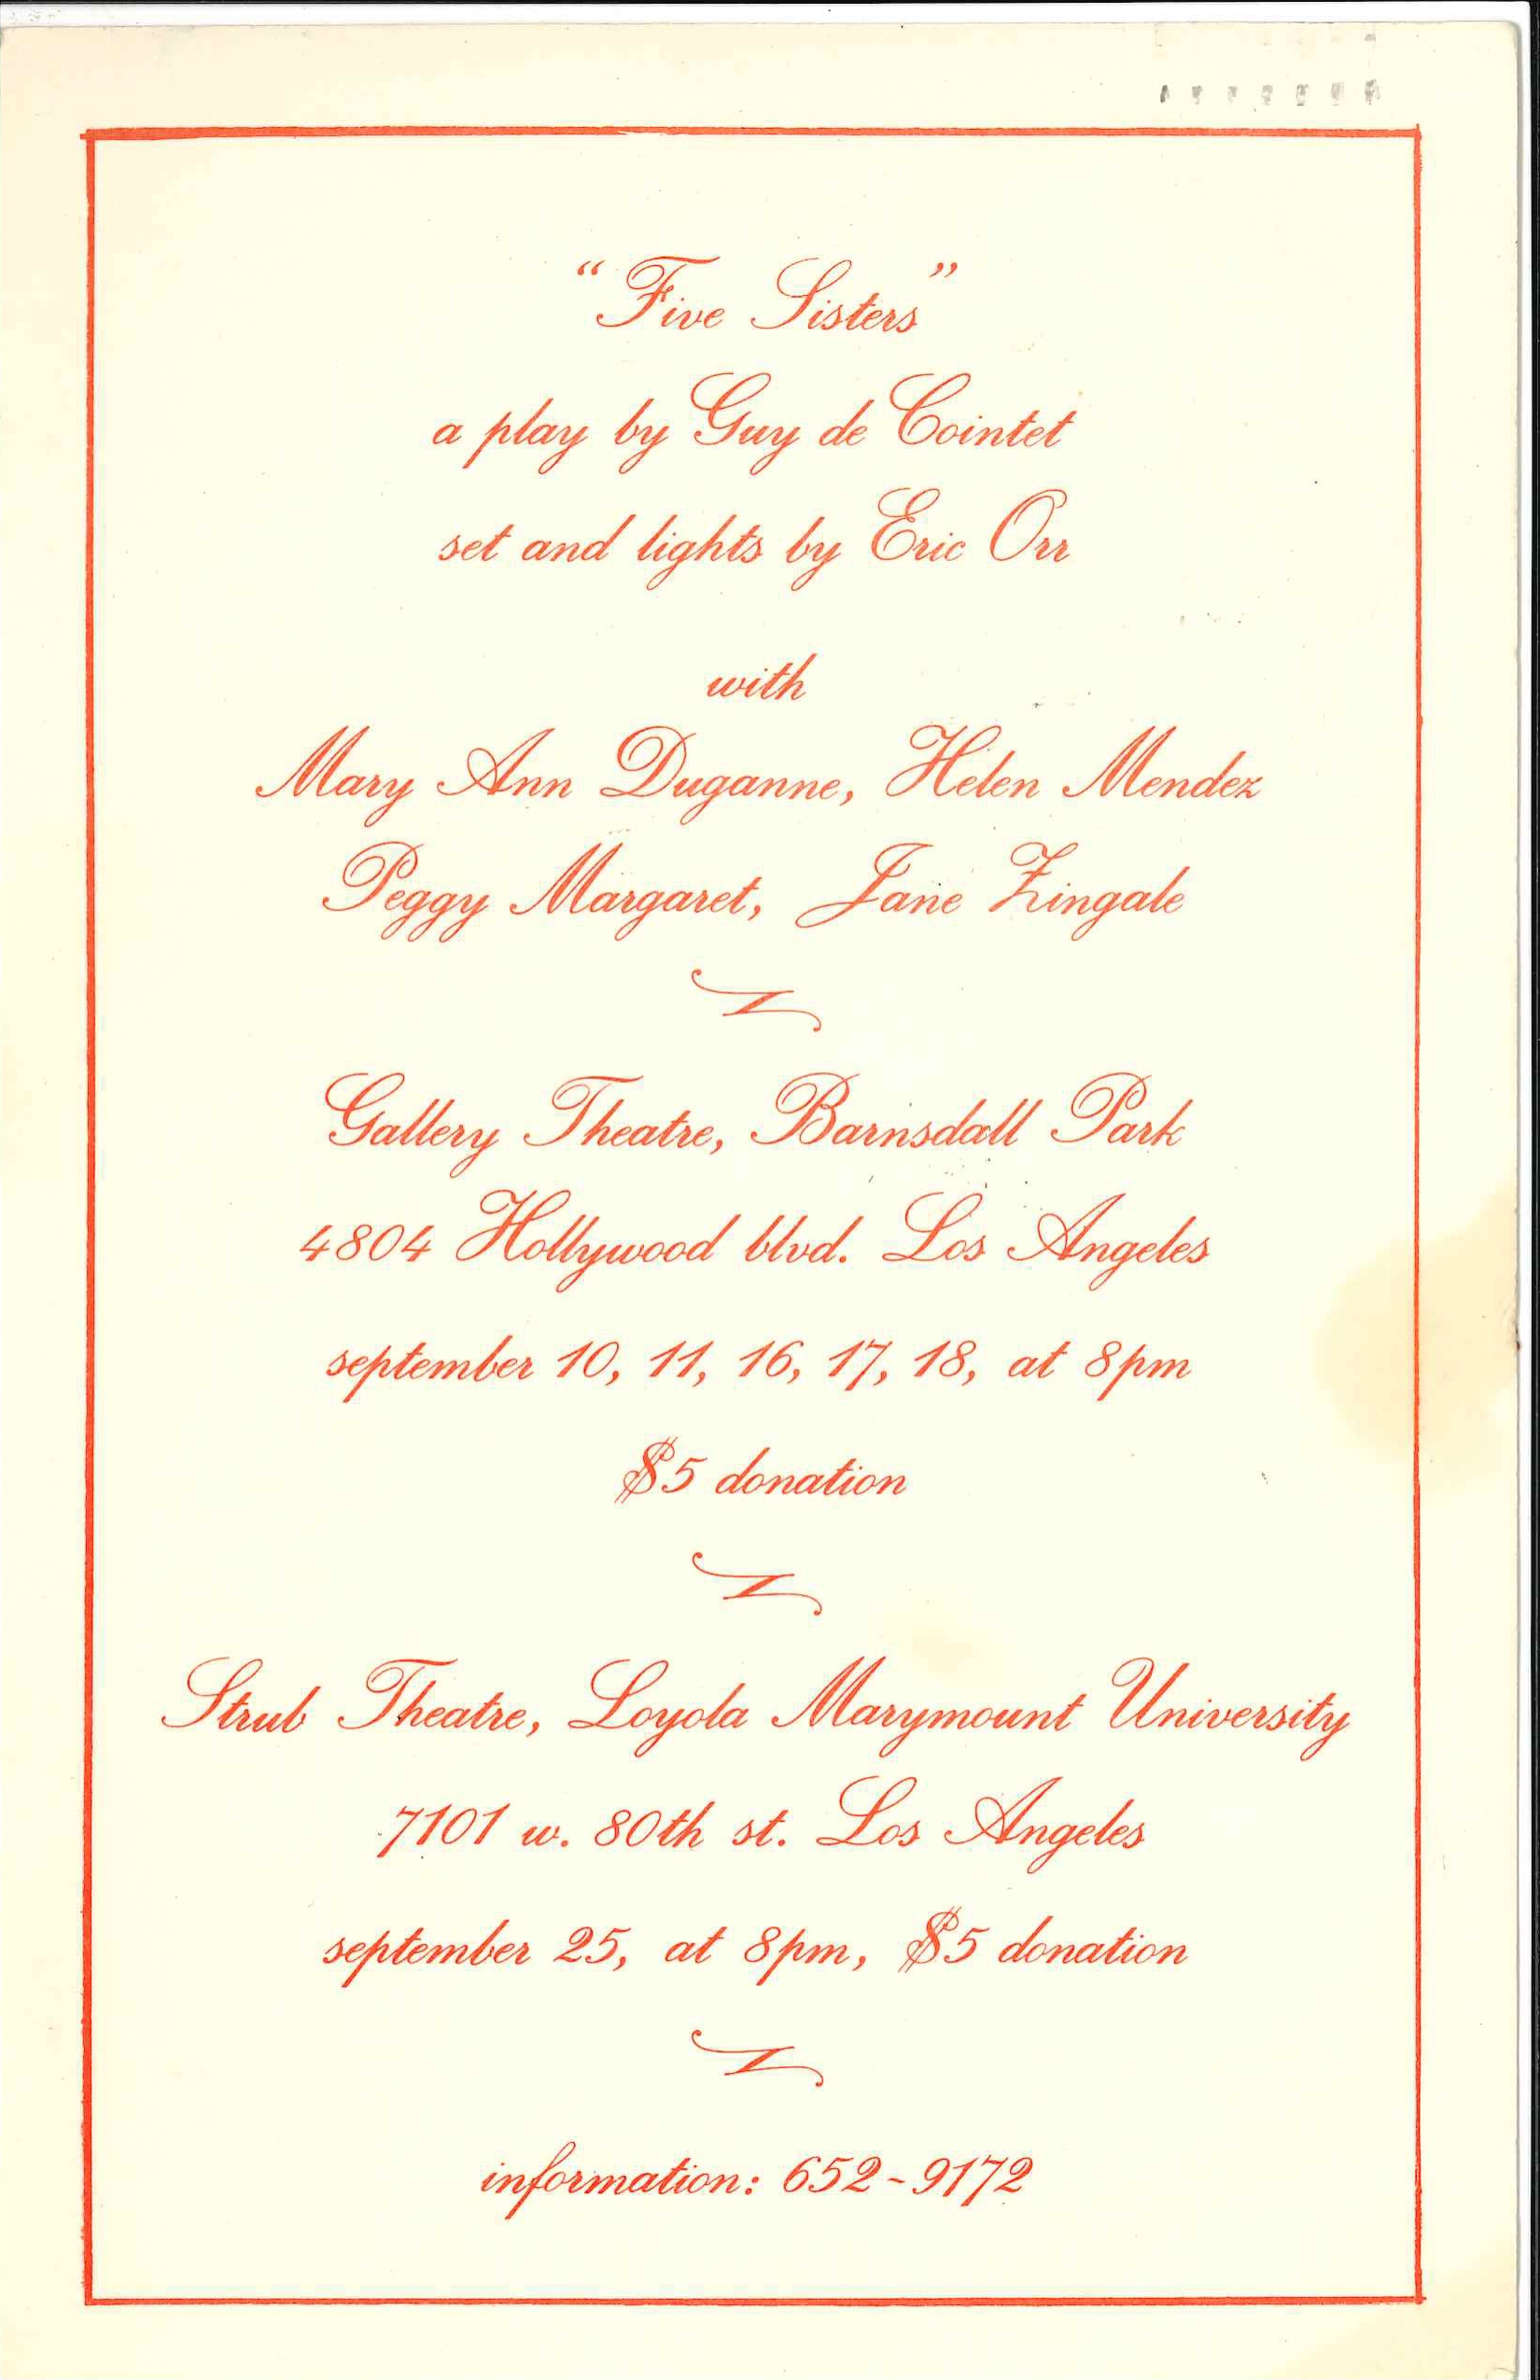 “Five Sisters”
a play by Guy de Cointet
set and lights by Eric Orr
with
Mary Ann Duganne, Helen Mendez
Peggy Margaret, Jane Zingale
Gallery Theatre, Barnsdall Park
4804 Hollywood blvd. Los Angeles
september 10, 11, 16, 17, 18, at 8pm
$5 donation
Strub Theatre, Loyola Marymount University
7101 w. 80th st. Los Angeles
september 25, at 8pm, $5 donation
information: 652-9172